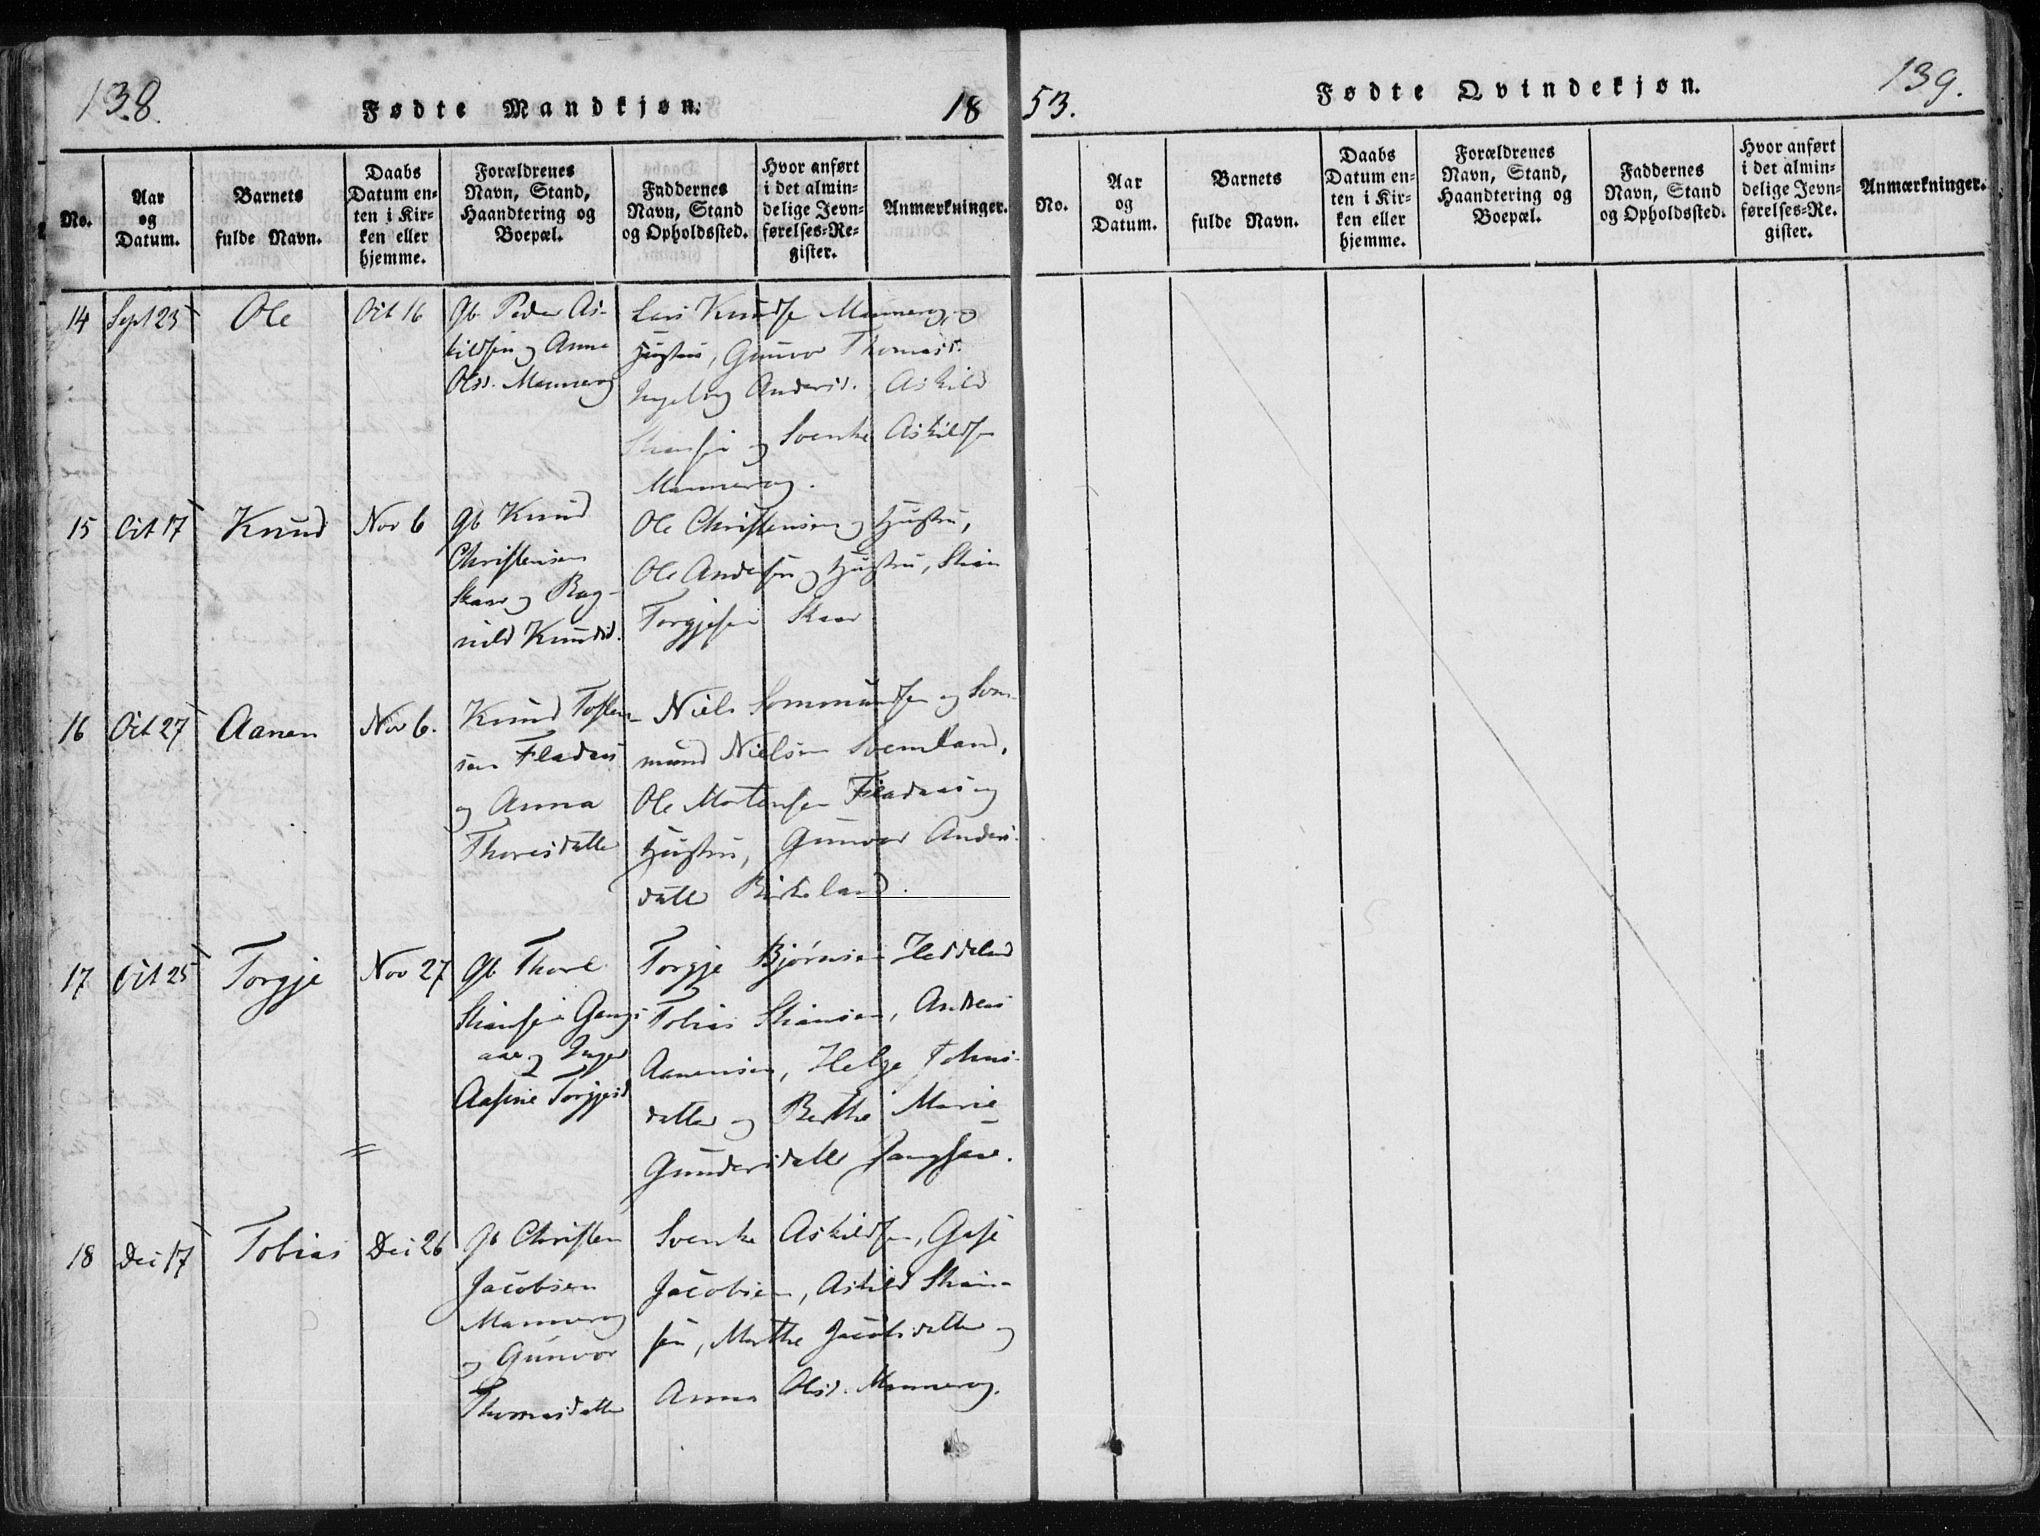 138.
Fødte Mandkjøn.
18
No.
Aar og Datum.
Barnets fulde Navn.
Daabs Datum enten i Kirken eller hjemme.
Forældrenes Navn, Stand, Haandtering og Boepæl.
Faddernes Navn, Stand og Opholdssted.
Hvor anført i det almindelige Jevnførelses-Register.
Anmærkninger.
14 Sept 23 Ole Oct 16
Gb Peder As-
kildsen og Anna
Olsd. Mannerog
Lars Knudsen Mannerog, og
Hustru, Gunvor Thomasd.
Ingeborg Andersd. Askild
og Svenke Askildsen
Mannerog.
15 Oct 17 Knud Nov 6
Gb Knud
Christensen
Skaar og Rag-
nild Knudsd.
Ole Christensen og Hustru,
Ole Andersen og Hustru, Stian
Torgjesen Skaar
16 Oct 27 Aanen Nov 6.
Knud Tosten-
sen Fladaas
og Anna
Thoresdatter
Niels Sommundsen og Som-
mund Nielsen
Ole Mortensen Fladaas og
Hustru, Gunvor Anders-
datter Birkeland.
17 Oct 25 Torgje Nov 27
Gb Thore
Stiansen
og Inger
Aasine Torgjesd
Torgje Bjørnsen Heddeland
Tobias Stiansen, Andreas
Aanensen, Helge Johns-
datter og Berthe Marie
Gundersdatter
18 Dec 17 Tobias Dec 26
Gb Christen
Jacobsen
Mannerog
og Gunvor
Thomasdatter
Svenke Askildsen,
Jacobsen, Askild Stian-
sen, Marthe Jacobsdatter og
Anna Olsd. Mannerog.
53.
Fødte Qvindekjøn.
139.
No.
Aar og Datum.
Barnets fulde Navn.
Daabs Datum enten i Kirken eller hjemme.
Forældrenes Navn, Stand, Haandtering og Boepæl.
Faddernes Navn, Stand og Opholdssted.
Hvor anført i det almindelige Jevnførelses-Register.
Anmærkninger.